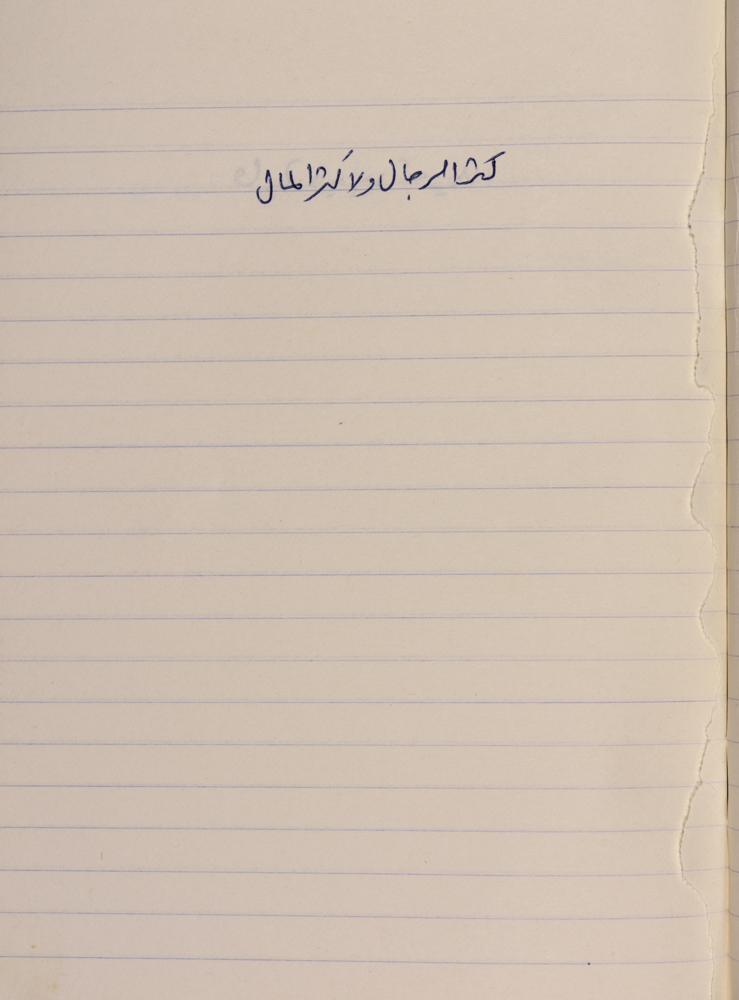 كثر الرجال ولا كثر المال